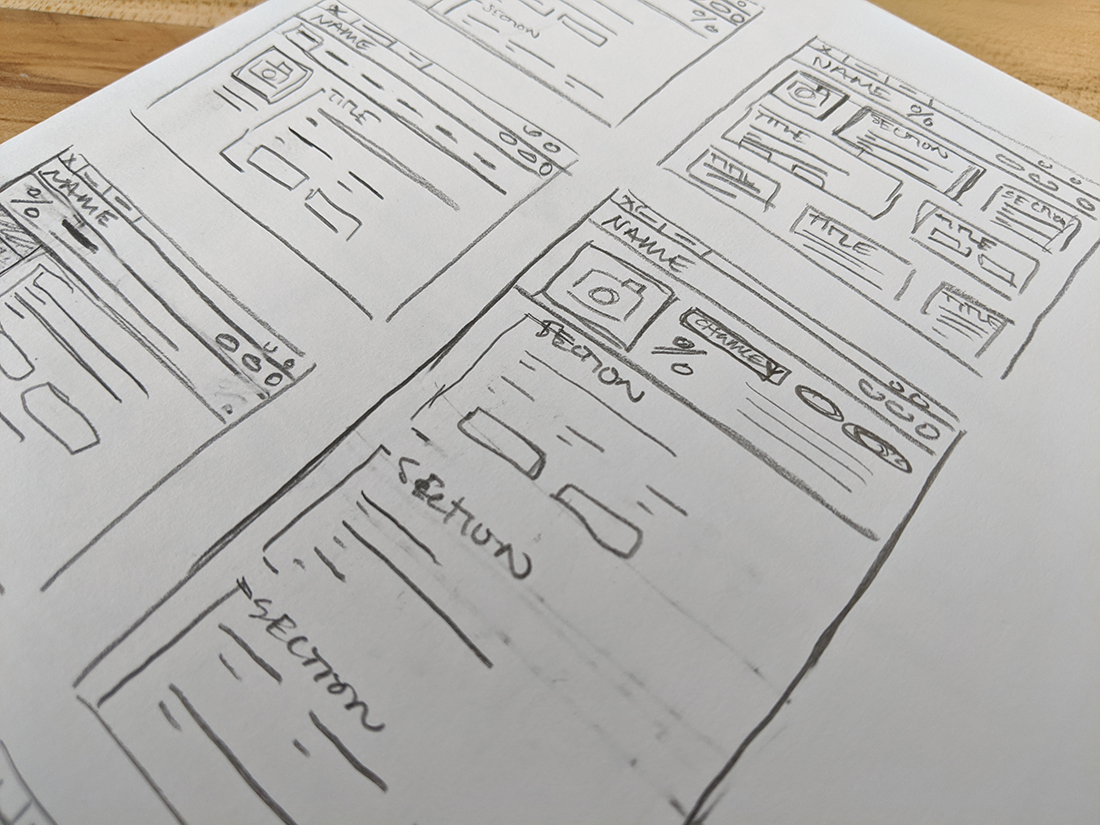 SECTION
%
X
NAME
TITLE
X
NAME
%
SECTION
TITLE
SECTION
TITLE
TITLE
TITLE
TITLE
X
NAME
%
X
NAME
%
SECTION
SECTION
SECTION